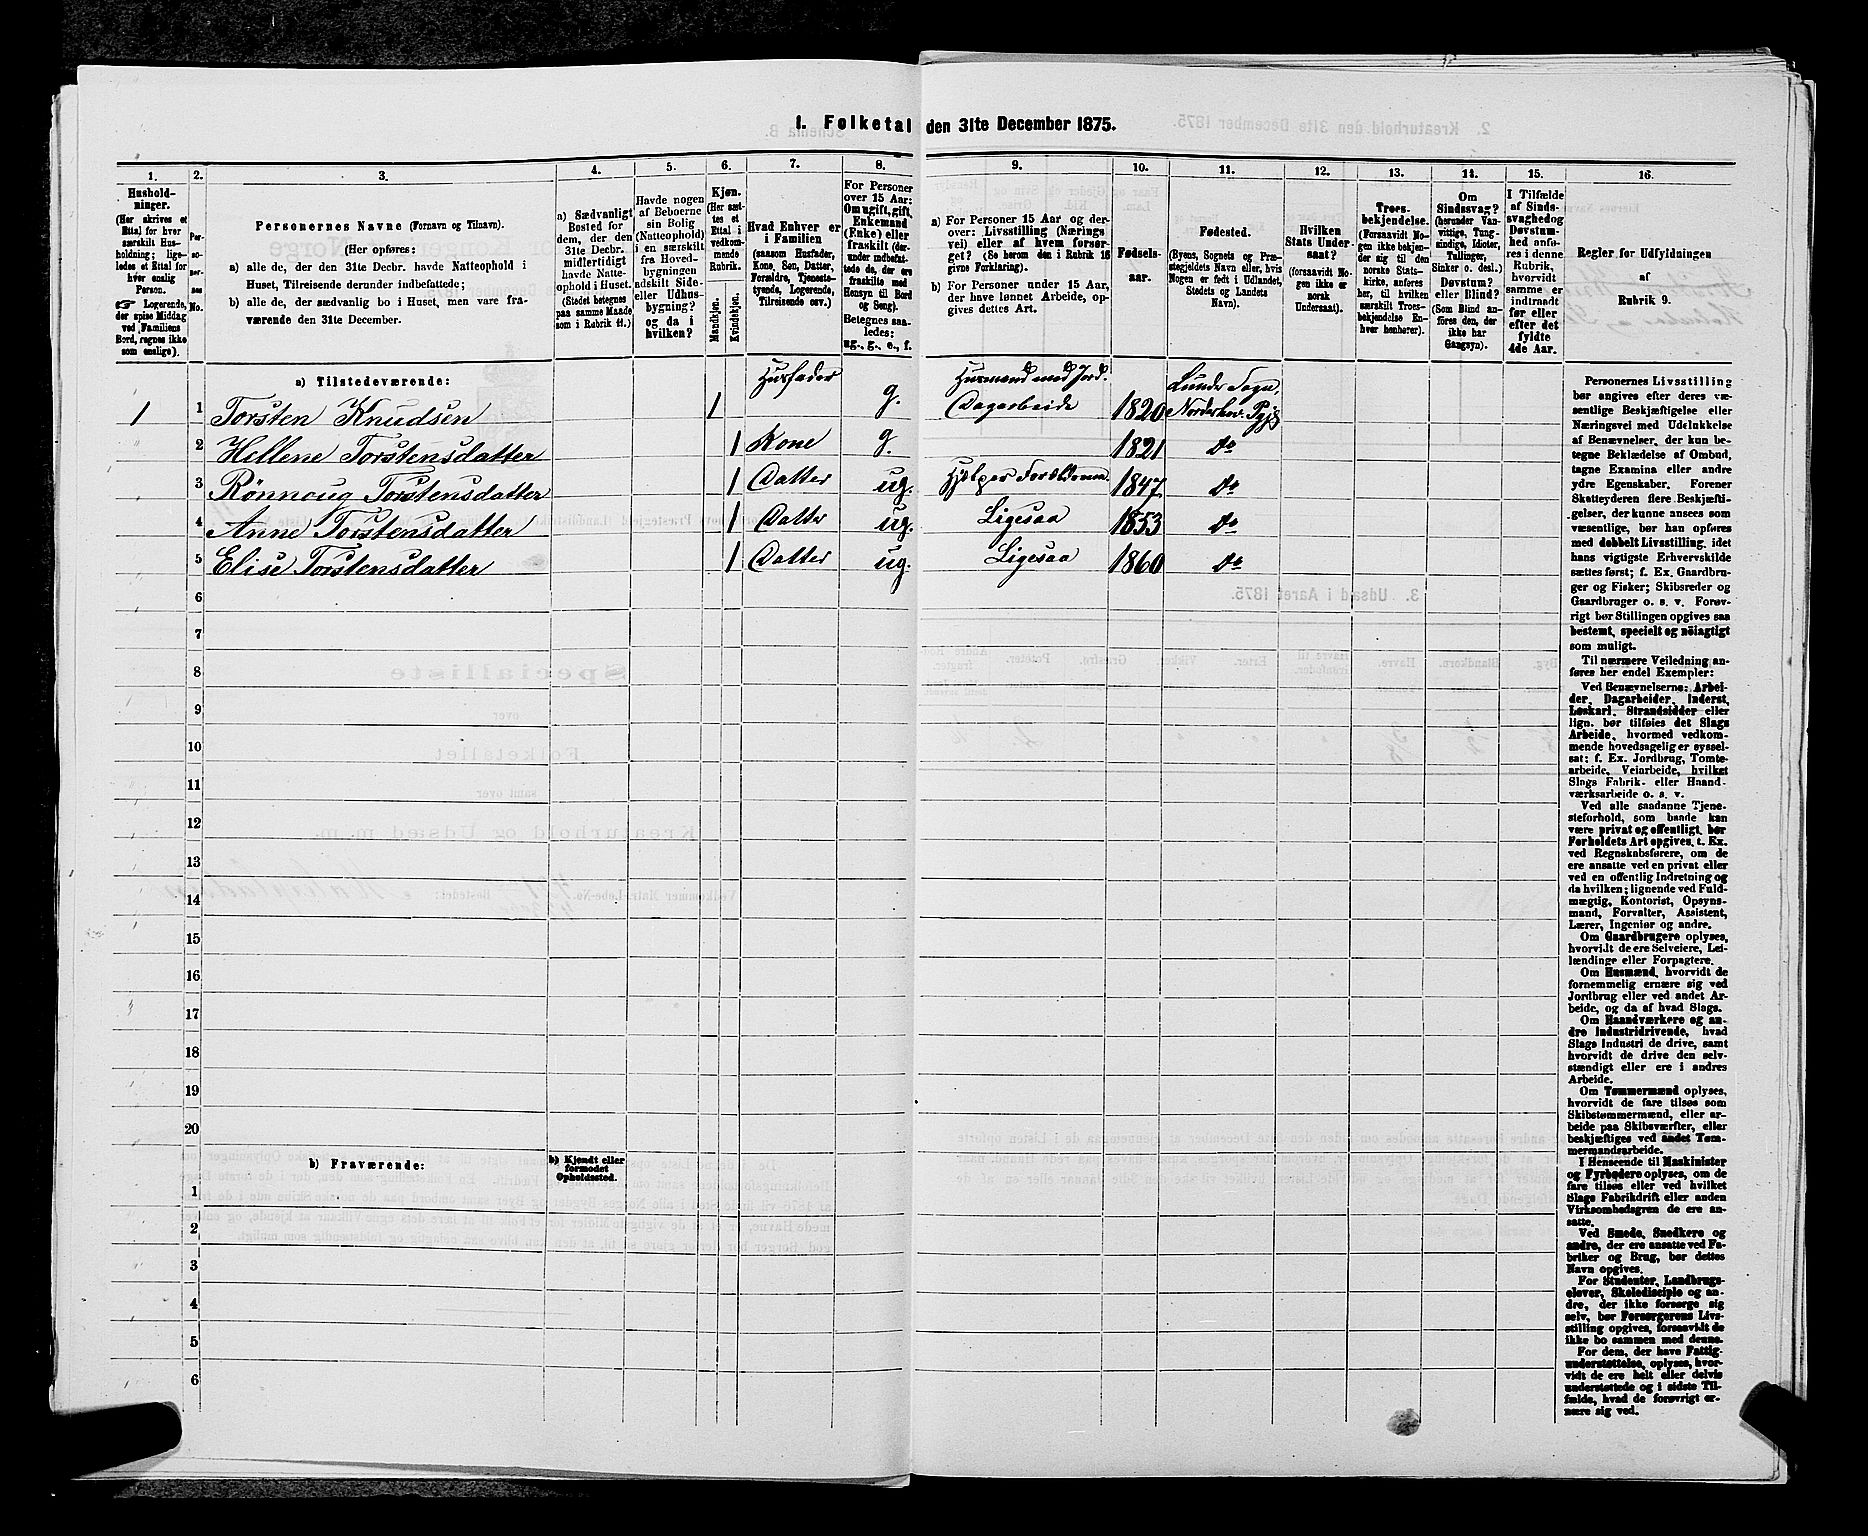 1. Folketal den 31te December 1875.
1.
Hushold-
ninger.
(Her skrives et
Ettal for hver
særskilt Hus-
holdning; lige-
ledes et Ettal for
hver enslig
Person.
Logerende,
der spise Middag
ved Familiens
Bord, regnes ikke
som enslige).
2.
Per-
so-
ner-
nes
No.
3.
Personernes Navne (Fornavn og Tilnavn).
(Her opføres:
a) alle de, der den 31te Decbr. havde Natteophold i
Huset, Tilreisende derunder indbefattede;
b) alle de, der sædvanlig bo i Huset, men vare fra-
værende den 31te December.
4.
a) Sædvanligt
Bosted for
dem, der den
31te Decbr.
midlertidigt
havde Natte-
ophold i Huset.
(Stedet betegnes
paa samme Maade
som i Rubrik 11.)
5.
Havde nogen
af Beboerne
sin Bolig
(Natteophold)
i en særskilt
fra Hoved-
bygningen
adskilt Side-
eller Udhus-
bygning?
og da i
hvilken?
6.
Kjøn.
(Her sæt-
tes et
Ettal i
vedkom-
mende
Rubrik.
Mandkjøn.
Kvindekjøn.
7.
Hvad Enhver er
i Familien
(saasom Husfader,
Kone, Søn, Datter,
Forældre, Tjeneste-
tyende, Logerende,
Tilreisende osv.)
8.
For Personer
over 15 Aar:
Om ugift, gift,
Enkemand
(Enke) eller
fraskilt (der-
under indbefat-
tede de, der ere
fraskilte med
Hensyn til Bord
og Seng).
Betegnes saa-
ledes:
ug., g., e., f.
9.
a) For Personer 15 Aar og der-
over: Livsstilling (Nærings
vei) eller af hvem forsør-
get? (Se herom den i Rubrik 16
givne Forklaring).
b) For Personer under 15 Aar,
der have lønnet Arbeide, op-
gives dettes Art.
10.
Fødsels-
aar.
11.
Fødested.
(Byens, Sognets og Præ-
stegjeldets Navn eller, hvis
Nogen er født i Udlandet,
Stedets og Landets
Navn).
12.
Hvilken
Stats Under-
saat?
(forsaavidt No-
gen ikke er
norsk
Undersaat).
13.
Troes-
bekjendelse.
(Forsaavidt No-
gen ikke bekjen-
der sig til den
norske Stats-
kirke, anføres
her, til hvilken
særskilt Troes-
bekjendelse En-
hver henhører).
14.
Om
Sindssvag?
(herunder Van-
vittige, Tung-
sindige, Idioter,
Tullinger,
Sinker o. desl.)
Døvstum?
eller Blind?
(Som Blind an-
føres den, der
ikke har
Gangsyn).
15.
I Tilfælde
af Sinds-
svaghed og
Døvstum-
hed anfø-
res i denne
Rubrik,
hvorvidt
samme er
indtraadt
før eller
efter det
fyldte
4de Aar.
16.
Regler for Udfyldningen
af
Rubrik 9.
a) Tilstedeværende:
1 1 Torsten Knudsen 1 Husfader g. Husmand med Jord. Dagarbeide 1820 Lunder Sogn, Norderhov. Pgj.
2 Hellene Torstensdatter 1 Kone g. 1821 Do
3 Rönnoug Torstensdatter 1 Datter ug. Hjelper Forældrene. 1847 Do
4 Anne Torstensdatter 1 Datter ug. Ligesaa 1853 Do
5 Elise Torstensdatter 1 Datter ug. Ligesaa 1860 Do
6
7
8
9
10
11
12
13
14
15
16
17
18
19
20
b) Fraværende:
b) Kjendt eller
formodet
Opholdssted.
1
2
3
4
5
6
Personernes Livsstilling
bør angives efter deres væ-
sentlige Beskjæftigelse eller
Næringsvei med Udelukkelse
af Benævnelser, der kun be-
tegne Beklædelse af Ombud,
tagne Examina eller andre
ydre Egenskaber. Forener
Skatteyderen flere Beskjæfti-
gelser, der kunne ansees som
væsentlige, bør han opføres
med dobbelt Livsstilling, idet
hans vigtigste Erhvervskilde
sættes først; f. Ex. Gaardbru-
ger og Fisker; Skibsreder og
Gaardbruger o. s. v. Forøv-
rigt bør Stillingen opgives saa
bestemt, specielt og nöiagtigt
som muligt.
Til nærmere Veiledning an-
føres her endel Exempler:
Ved Benævnelserne: Arbei-
der, Dagarbeider, Inderst,
Løskarl, Strandsidder eller
lign. bør tilføies det Slags
Arbeide, hvormed vedkom-
mende hovedsagelig er syssel-
sat; f. Ex. Jordbrug, Tomte-
arbeide, Veiarbeide, hvilket
Slags Fabrik- eller Haand-
værksarbeide o. s. v.
Ved alle saadanne Tjene-
steforhold, som baade kan
være privat og offentligt, bør
Forholdets Art opgives, t. Ex.
ved Regnskabsførere, om de
ere ansatte ved en privat eller
ved en offentlig Indretning og
da hvilken; lignende ved Fuld-
mægtig, Kontorist, Opsyns-
mand, Forvalter, Assistent,
Lærer, Ingeniør og andre.
Om Gaardbrugere oplyses,
hvorvidt de ere Selveiere, Lei-
lændinge eller Forpagtere.
Om Husmænd, hvorvidt de
fornemmelig ernære sig ved
Jordbrug eller ved andet Ar-
beide, og da af hvad Slags.
Om Haandværkere og an-
dre Industridrivende, hvad
Slags Industri de drive, samt
hvorvidt de drive den selv-
stændigt eller ere i andres
Arbeide.
Om Tømmermænd oplyses,
hvorvidt de fare tilsøs som
Skibstømmermænd, eller ar-
beide paa Skibsværfter, eller
beskjæftiges ved andet Tøm-
mermandsarbeide.
I Henseende til Maskinister
og Fyrbødere oplyses, om de
fare tilsøs eller ved hvilket
Slags Fabrikdrift eller anden
Virksomhedsgren de ere an-
satte.
Ved Smede, Snedkere og
andre, der ere ansatte ved Fa-
briker og Brug, bør dettes
Navn opgives.
For Studenter, Landbrugs-
elever, Skoledisciple og an-
dre, der ikke forsørge sig
selv, bør Forsørgerens Livs-
stilling opgives, forsaavidt de
ikke bo sammen med denne.
For dem, der have Fattig-
understøttelse, oplyses, hvor-
vidt de ere helt eller delvis
understøttede og i sidste Til-
fælde, hvad de forøvrigt er-
nære sig ved.